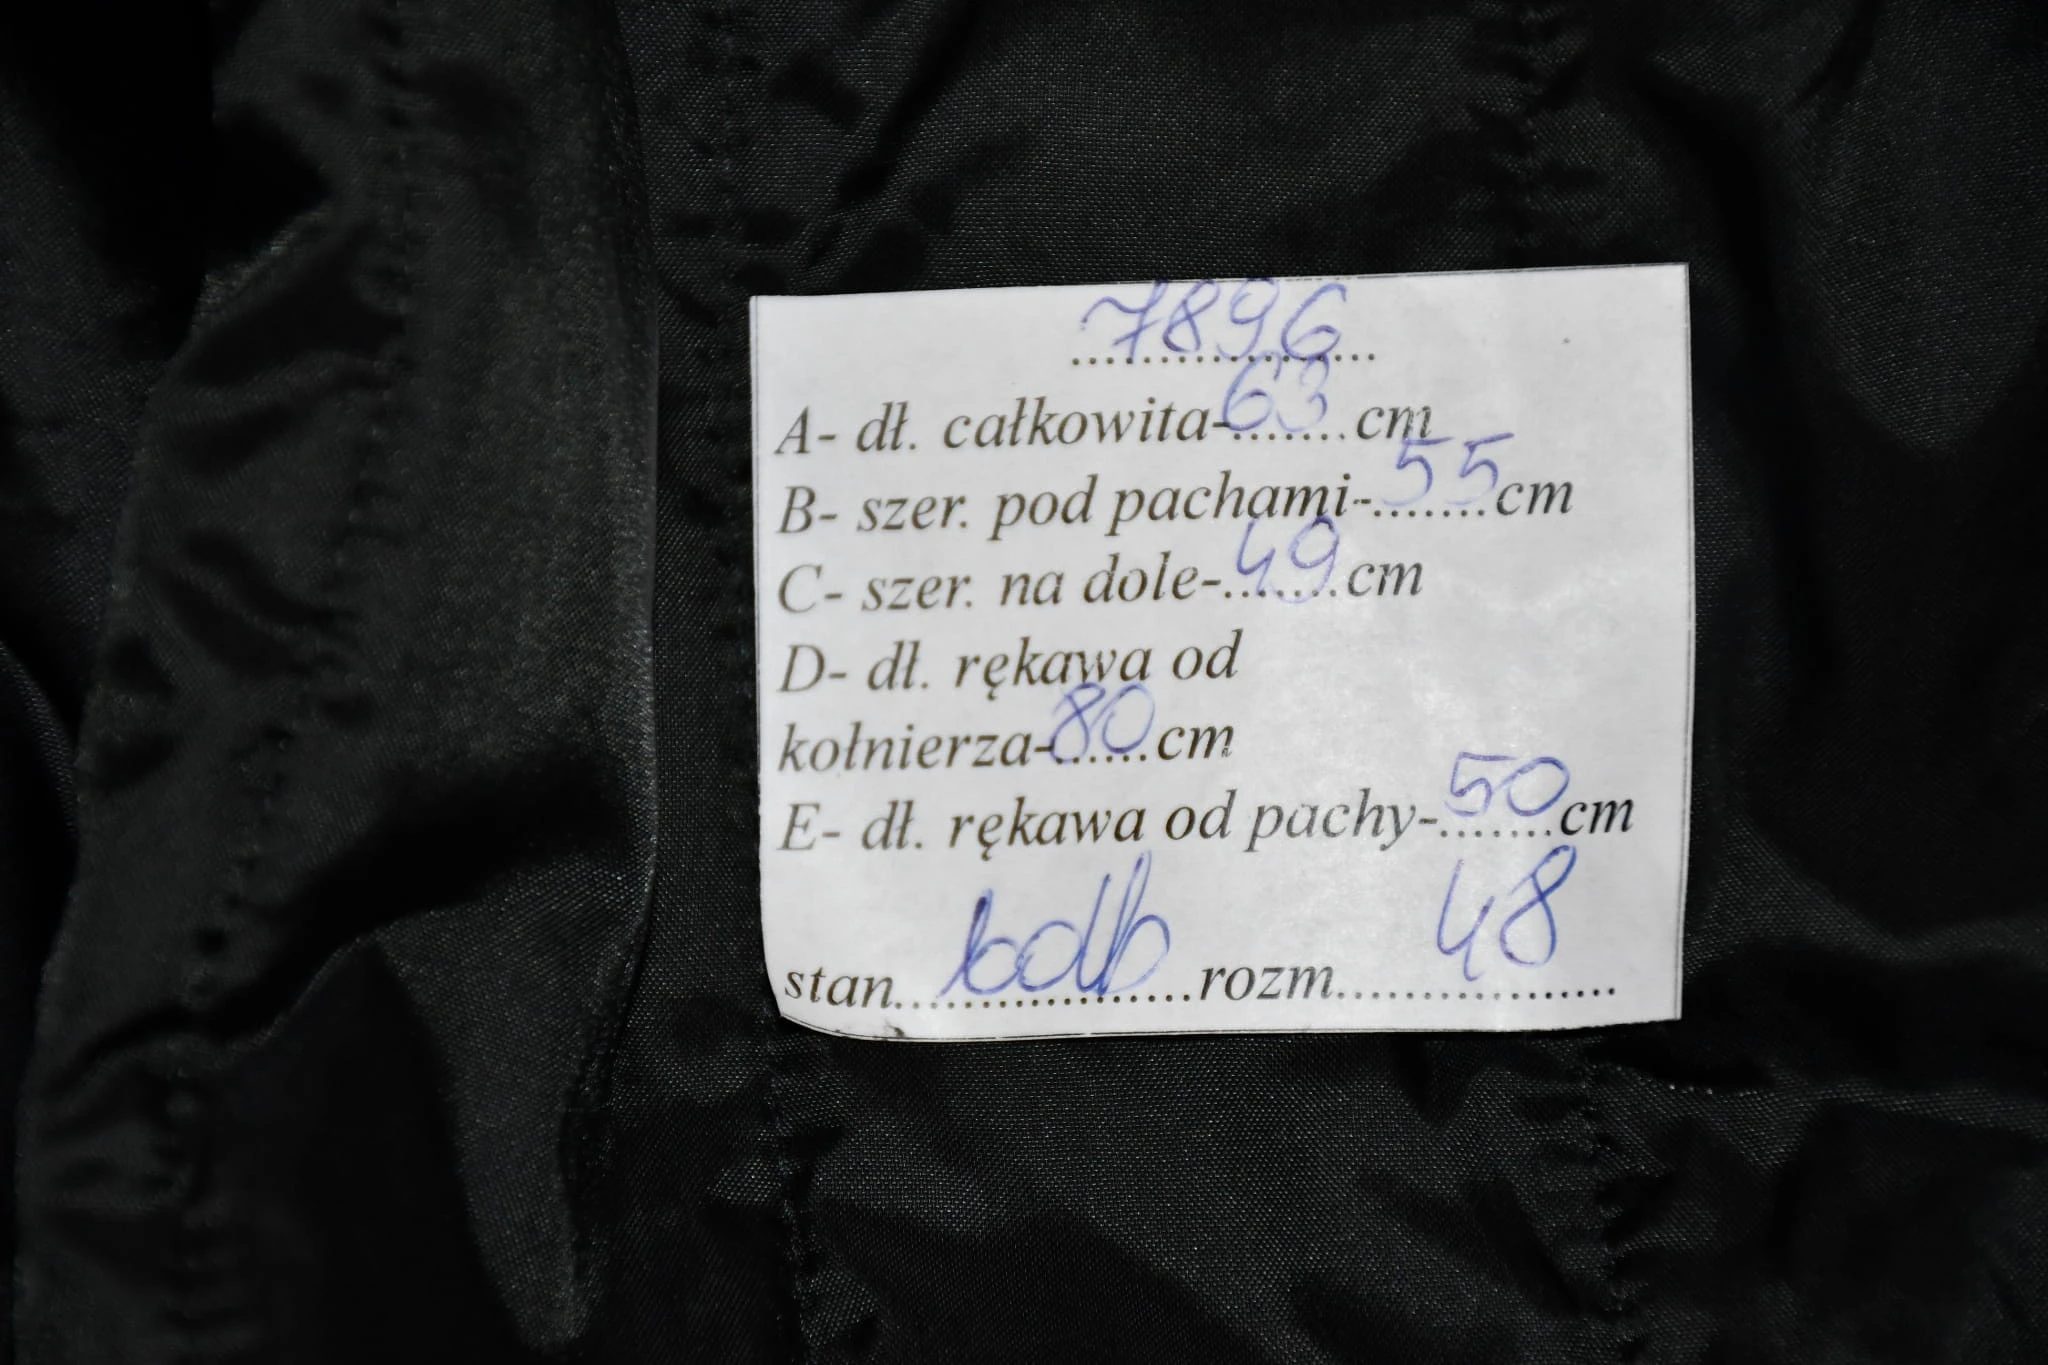 7896
A- dł. całkowita-63 cm
B- szer. pod pachami-55cm
C- szer. na dole-49cm
D- dł. rękawa od
kołnierza-80cm
E- dł. rękawa od pachy-50cm
stan bdb rozm 48